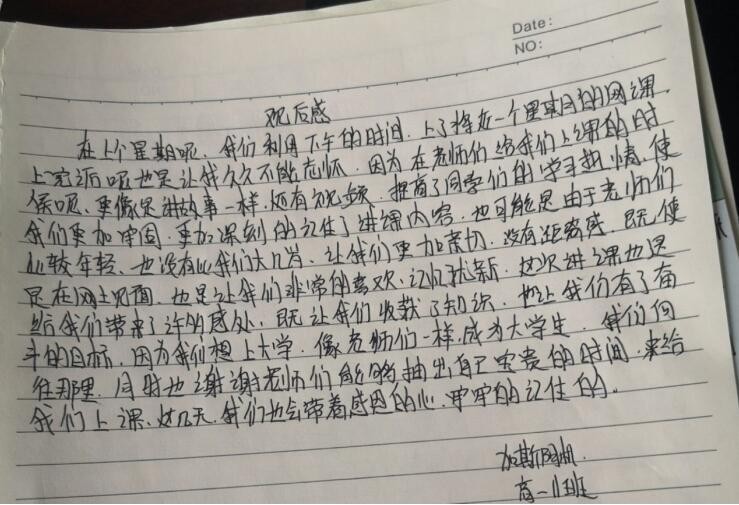 Date:
NO:
观后感
在上个星期呢、我们利用下午的时间、上了将近一个星期的网课、
上完后呢也是让我久久不能忘怀、因为在老师们给我们上课的时
候呢、更像是讲故事一样、还有视频、提高了同学们的学习热情、使
我们更加牢固、更加深刻的记住了讲课内容、也可能是由于老师们
比较年轻、也没有比我们大几岁、让我们更加亲切、没有距离感、既使
是在网上见面、也是让我们非常的喜欢、记忆犹新、这次讲课也是
给我们带来了许的感处、既让我们收获了知识、也让我们有了奋
斗的目标、因为我们想上大学、像老师们一样、成为大学生、我们向
往那里、同时也谢谢老师们能够抽出自己宝贵的时间、来给
我们上课、这几天、我们也会带着感恩的心、牢牢的记住的。
加斯
高一11班